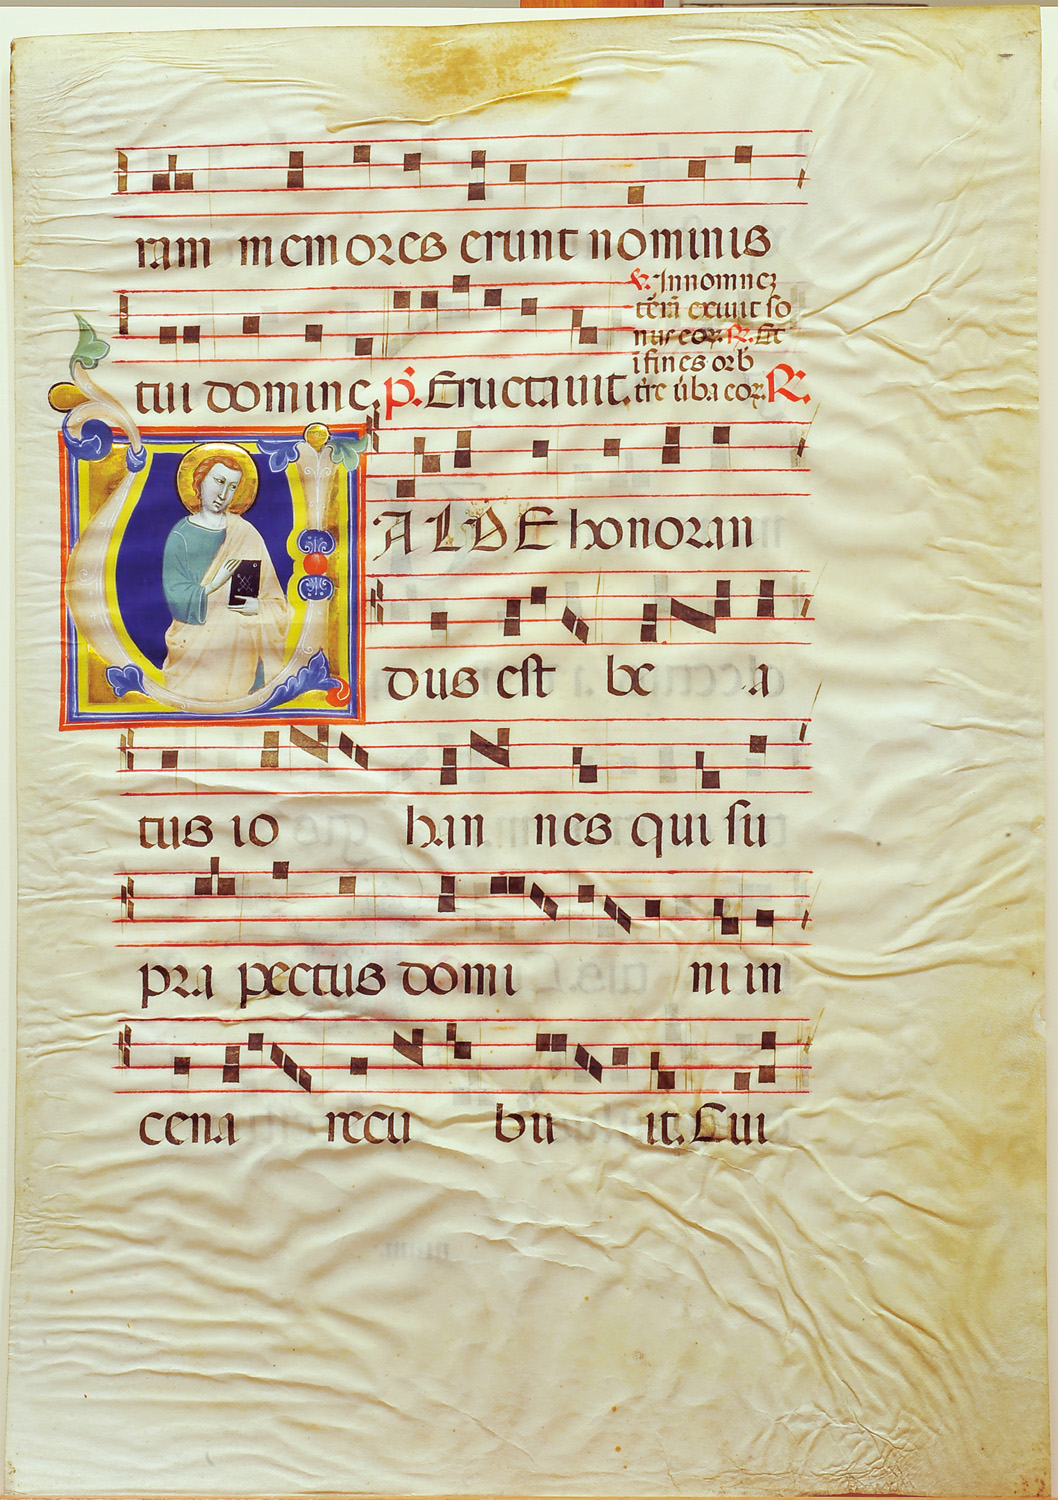 ram memores erunt nominis
tui domine. p̄. Eructauit.
℣. In omnez
tēm̄ exiuit so
nus eoꝝ. ℟. Et
ī fines orb̄
tr̄e ūba eoꝝ. ℟.
VALDE honoran
dus est be a
tus io han nes qui su
pra pectus domi ni in
cena recu bu it. Cui